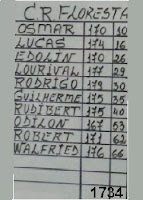 C.R. FLORESTA
OSMAR 170 10
LUCAS 174 16
EDOLIN 170 26
LOURIVAL 177 29
RODRIGO 179 30
GUILHERME 175 35
RUDIBERT 175 40
ODILON 53
ROBERT 171 62
WALFRIED 176 66
1734